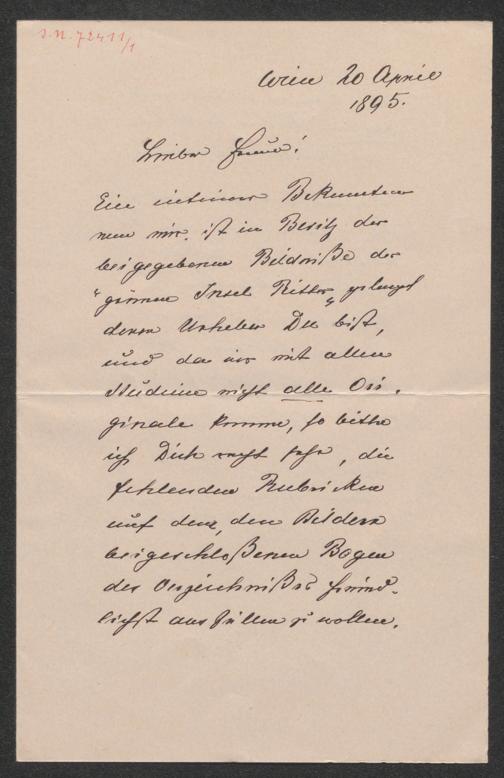 J.N. 72411/1
Wien 20 April
1895.
Lieber Freund!
Ein intimer Bekannter
von mir, ist in Besitz der
beigegebenen Bildniße der
"grünen Insel Ritter" gelangt
deren Urheber Du bist,
und da er mit allen
Studium nicht alle Ori-
ginale kennt, so bitte
ich Dich recht sehr, die
fehlenden Rubriken
auf dem, den Bildern
beigeschloßenen Bogen
des Verzeichnißes freund-
lichst ausfüllen zu wollen.